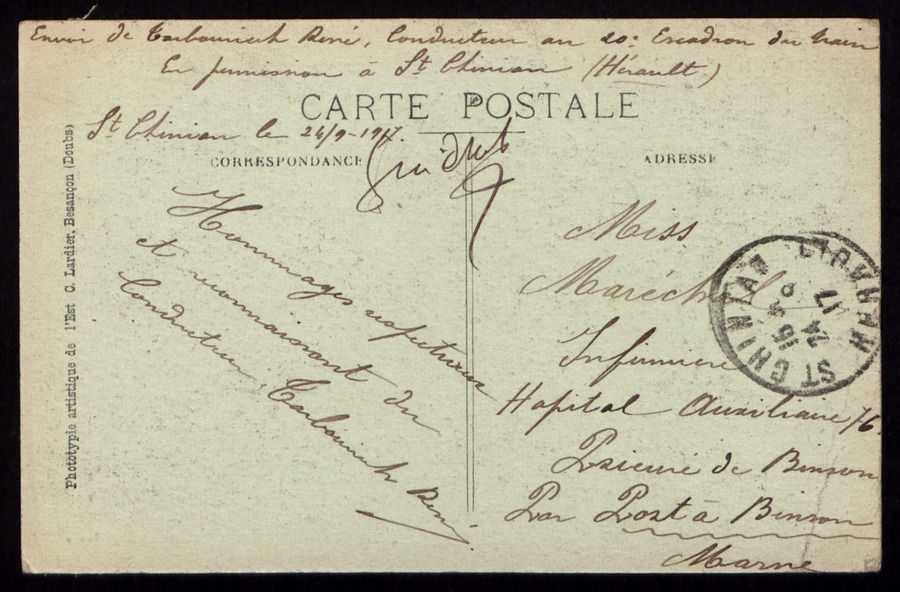 Envoi de Carbouriech René, Conducteur au 20e Escadron du Train
En permission à St Chinian (Hérault)
CARTE POSTALE
St Chinian le 24/9-1917
CORRESPONDANCE
ADRESSE
Hommages respectueux
et reconnaissant du
Conducteur, Carbouriech René
Miss
Maréchal
Infirmière
Hopital Auxiliaire 76
Prieuré de Binson
Par Port à Binson
Marne
ST CHINIAN
Phototypie artistique de l'Est C. Lardier, Besançon (Doubs)